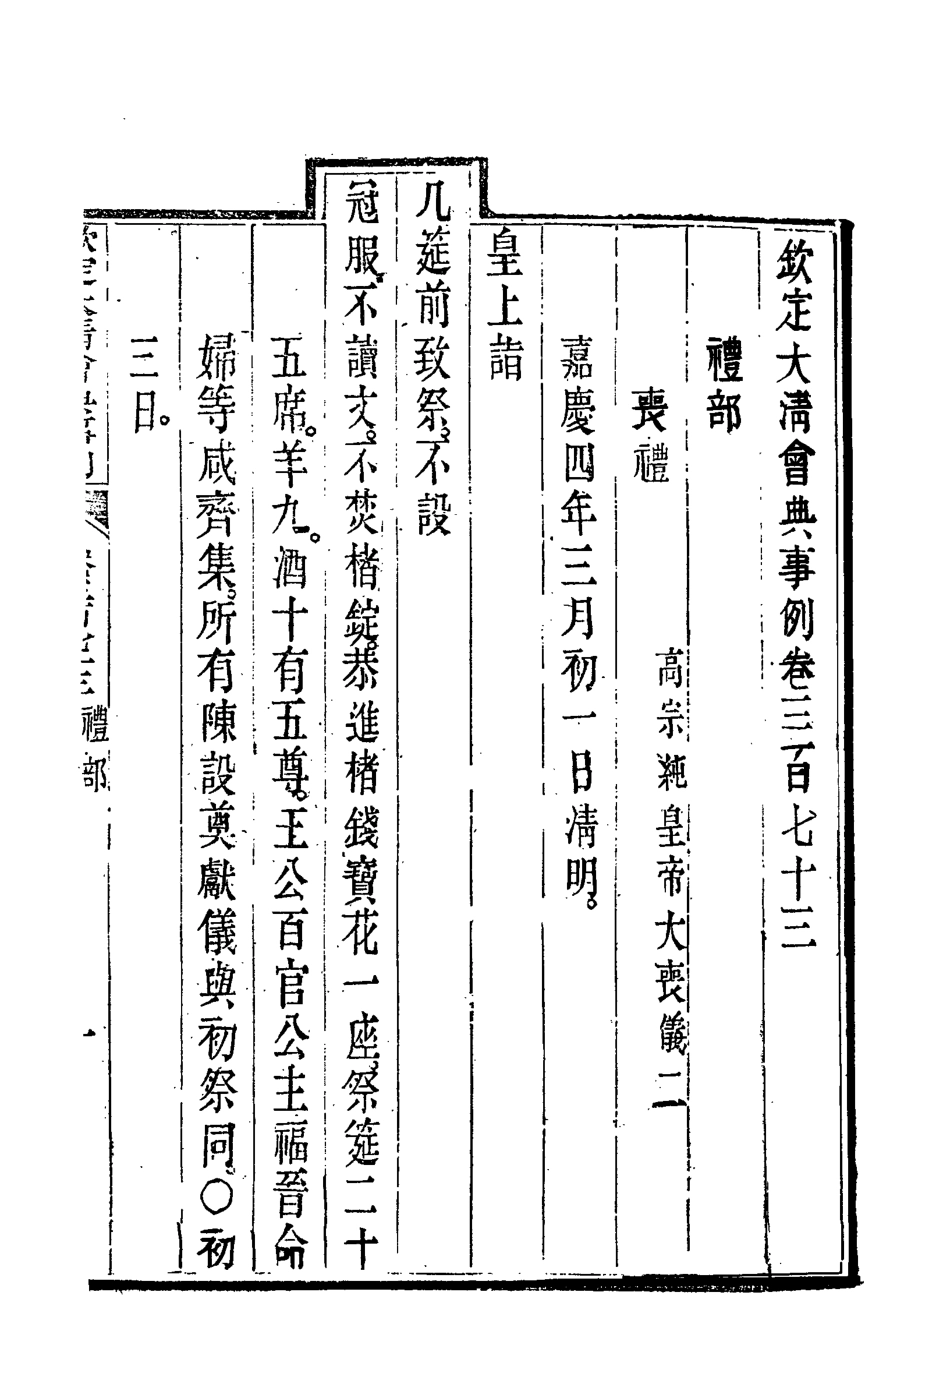 欽定大清會典事例卷三百七十三
禮部
喪禮　高宗純皇帝大喪儀二
嘉慶四年三月初一日清明。
皇上詣
几筵前致祭。不設
冠服。不讀文。不焚楮錠。恭進楮錢寶花一座。祭筵二十
五席。羊九。酒十有五尊。王公百官公主福晉命
婦等咸齊集。所有陳設奠獻儀與初祭同。〇初
三日。
禮部
一